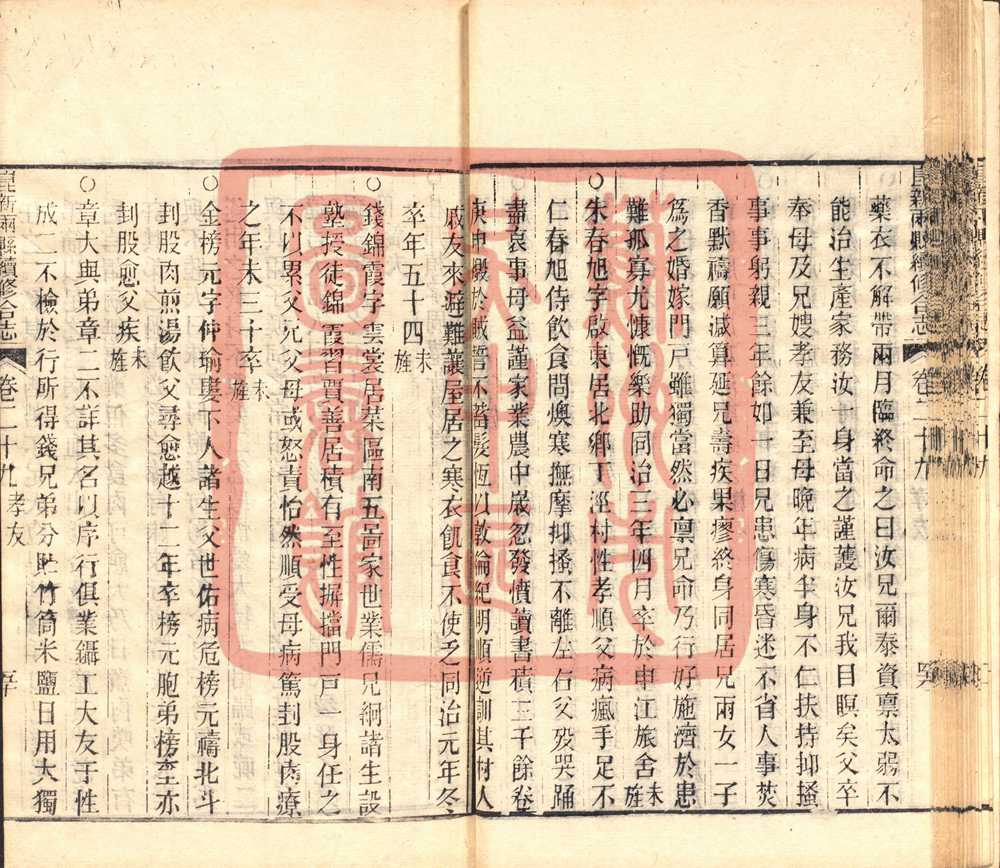 藥衣不解帶兩月臨終命之曰汝兄爾泰資禀太弱不
能治生產家務汝一身當之謹護汝兄我目瞑矣父卒
奉母及兄嫂孝友兼至母晚年病半身不仁扶持抑搔
事事躬親三年餘如一日兄患傷寒昏迷不省人事焚
香默禱願減算延兄壽疾果瘳終身同居兄兩女一子
爲之婚嫁門戸雖獨當然必禀兄命乃行好施濟於患
難孤寡尤慷慨樂助同治三年四月卒於申江旅舍未旌
○朱春旭字啟東居北鄉丁涇村性孝順父病瘋手足不
仁春旭侍飲食問燠寒撫摩抑搔不離左右父歿哭踊
盡哀事母益謹家業農中歲忽發憤讀書積三千餘卷
庚申 於賊誓不薙髮恆以敦倫紀明順逆訓其村人
戚友來避難讓屋居之寒衣飢食不使乏同治元年冬
卒年五十四未旌
○錢錦霞字雲裳居菜區南五啚家世業儒兄綱諸生設
塾授徒錦霞習賈善居積有至性摒擋門戸一身任之
不以累父兄父母或怒責怡然順受母病篤刲股肉療
之年未三十卒未旌
○金榜元字仲瑜婁下人諸生父世佑病危榜元禱北斗
刲股肉煎湯飲父尋愈越十二年卒榜元胞弟榜奎亦
刲股愈父疾未旌
○章大與弟章二不詳其名以序行俱業鑷工大友于性
成二不檢於行所得錢兄弟分貯竹筒米鹽日用大獨
皇新兩縣續修合志
卷二十九 孝友